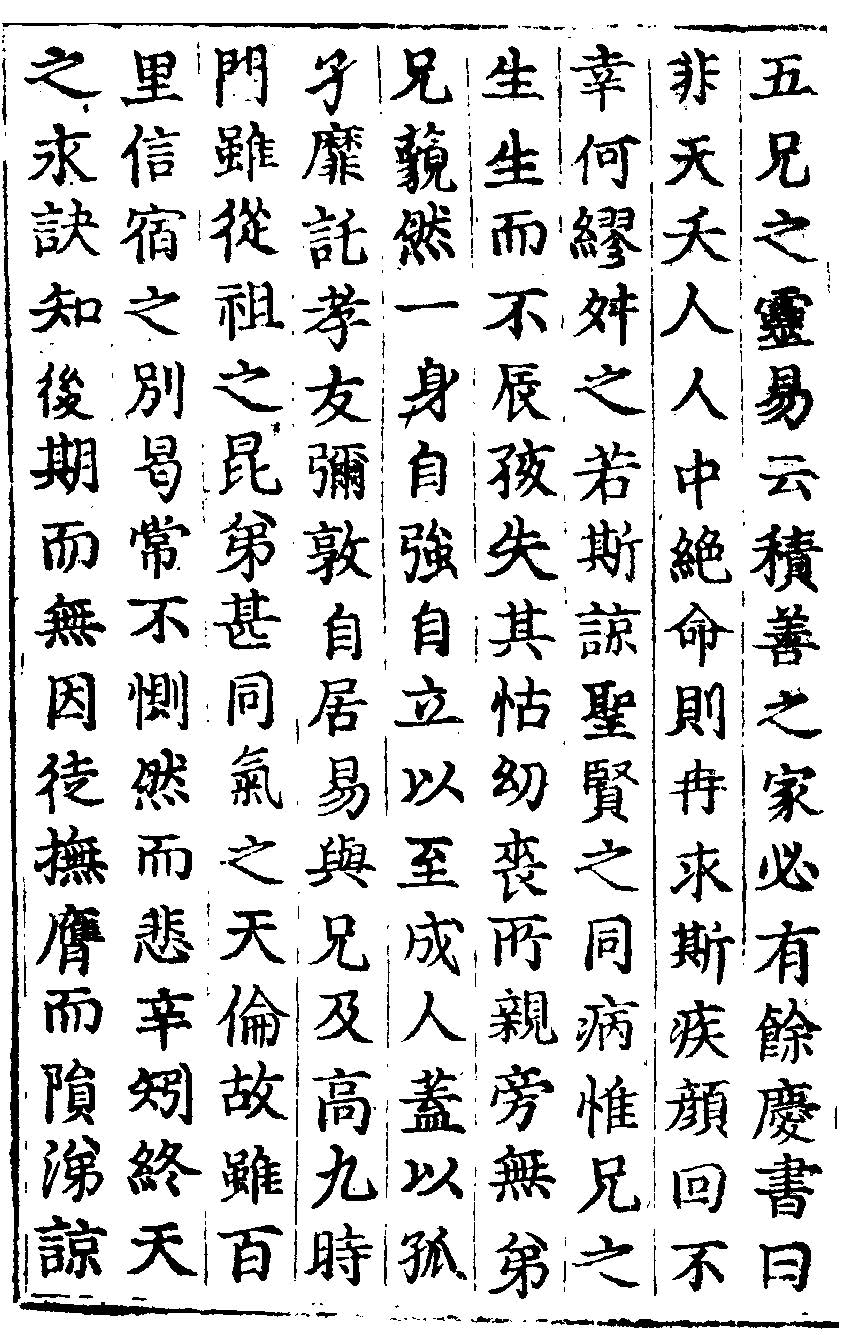 五兄之靈易云積善之家必有餘慶書曰
非天夭人人中絕命則冉求斯疾顏回不
幸何繆舛之若斯諒聖賢之同病惟兄之
生生而不辰孩失其怙幼喪所親旁無弟
兄藐然一身自強自立以至成人蓋以孤
孑靡託孝友彌敦自居易與兄及高九時
門雖從祖之昆弟甚同氣之天倫故雖百
里信宿之別曷常不惻然而悲辛矧終天
之永訣知後期而無因徒撫膺而隕涕諒